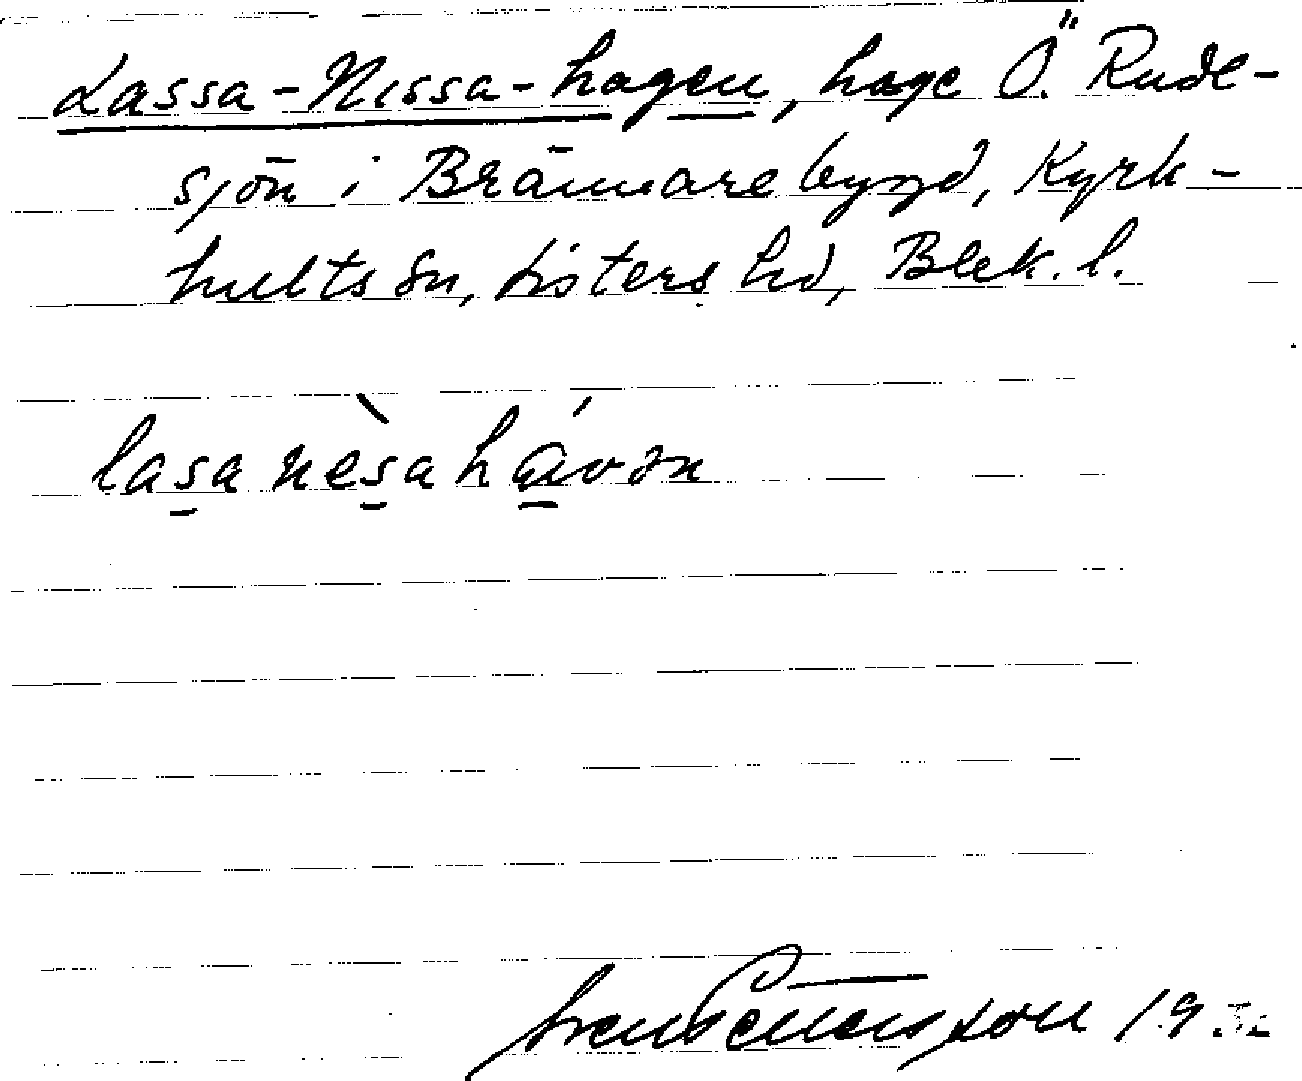 Lassa-Nissa-hagen, hage Ö. Rude-
sjön i Brännarebygd, Kyrk-
hults sn, Listers hd, Blek. l.
lasa nèsa hávən
Sven Benson 19